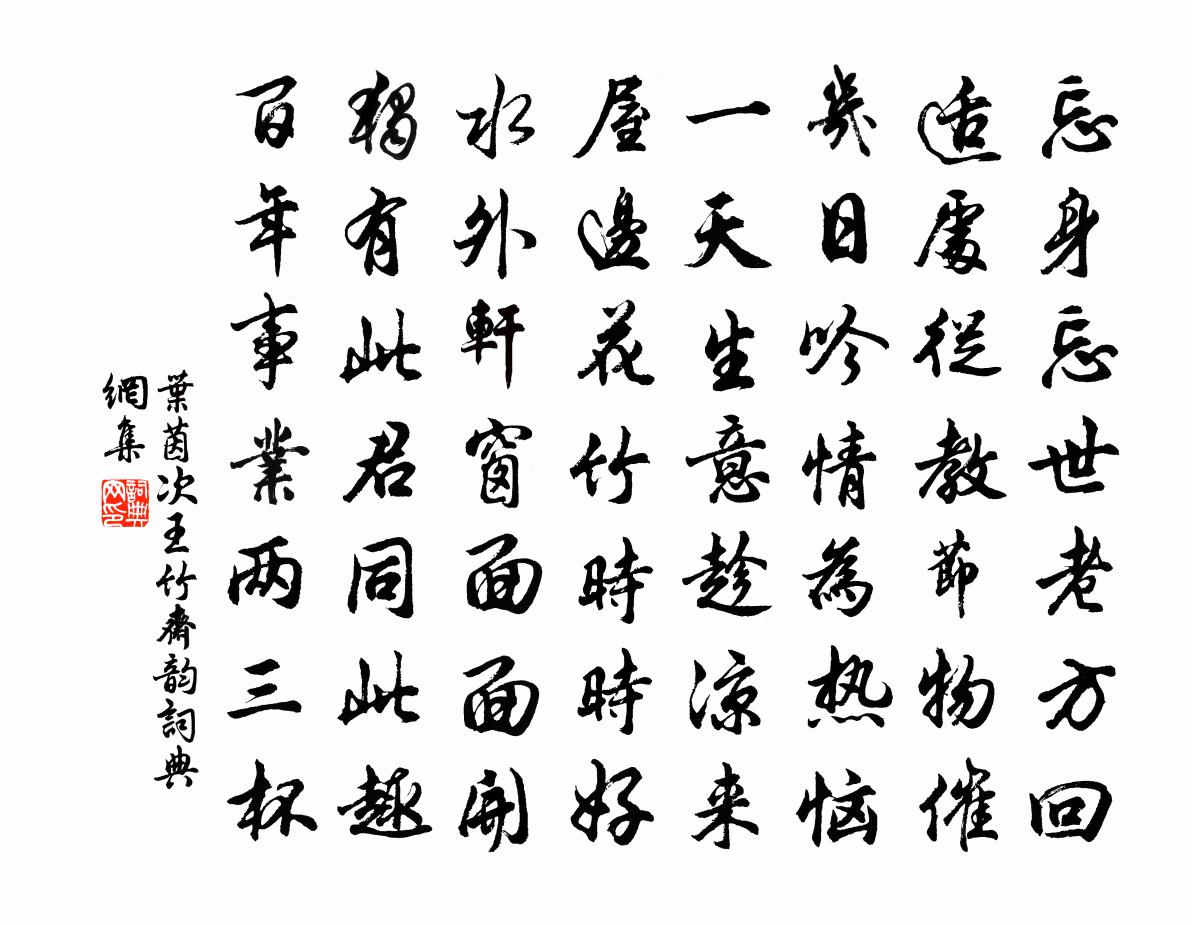 忘身忘世老方回
适處從教節物催
幾日吟情為热恼
一天生意趁涼来
屋邊花竹時時好
水外軒窗面面開
獨有此君同此趣
百年事業两三杯
葉茵次王竹齋韵詞典
網集
詞典
网印